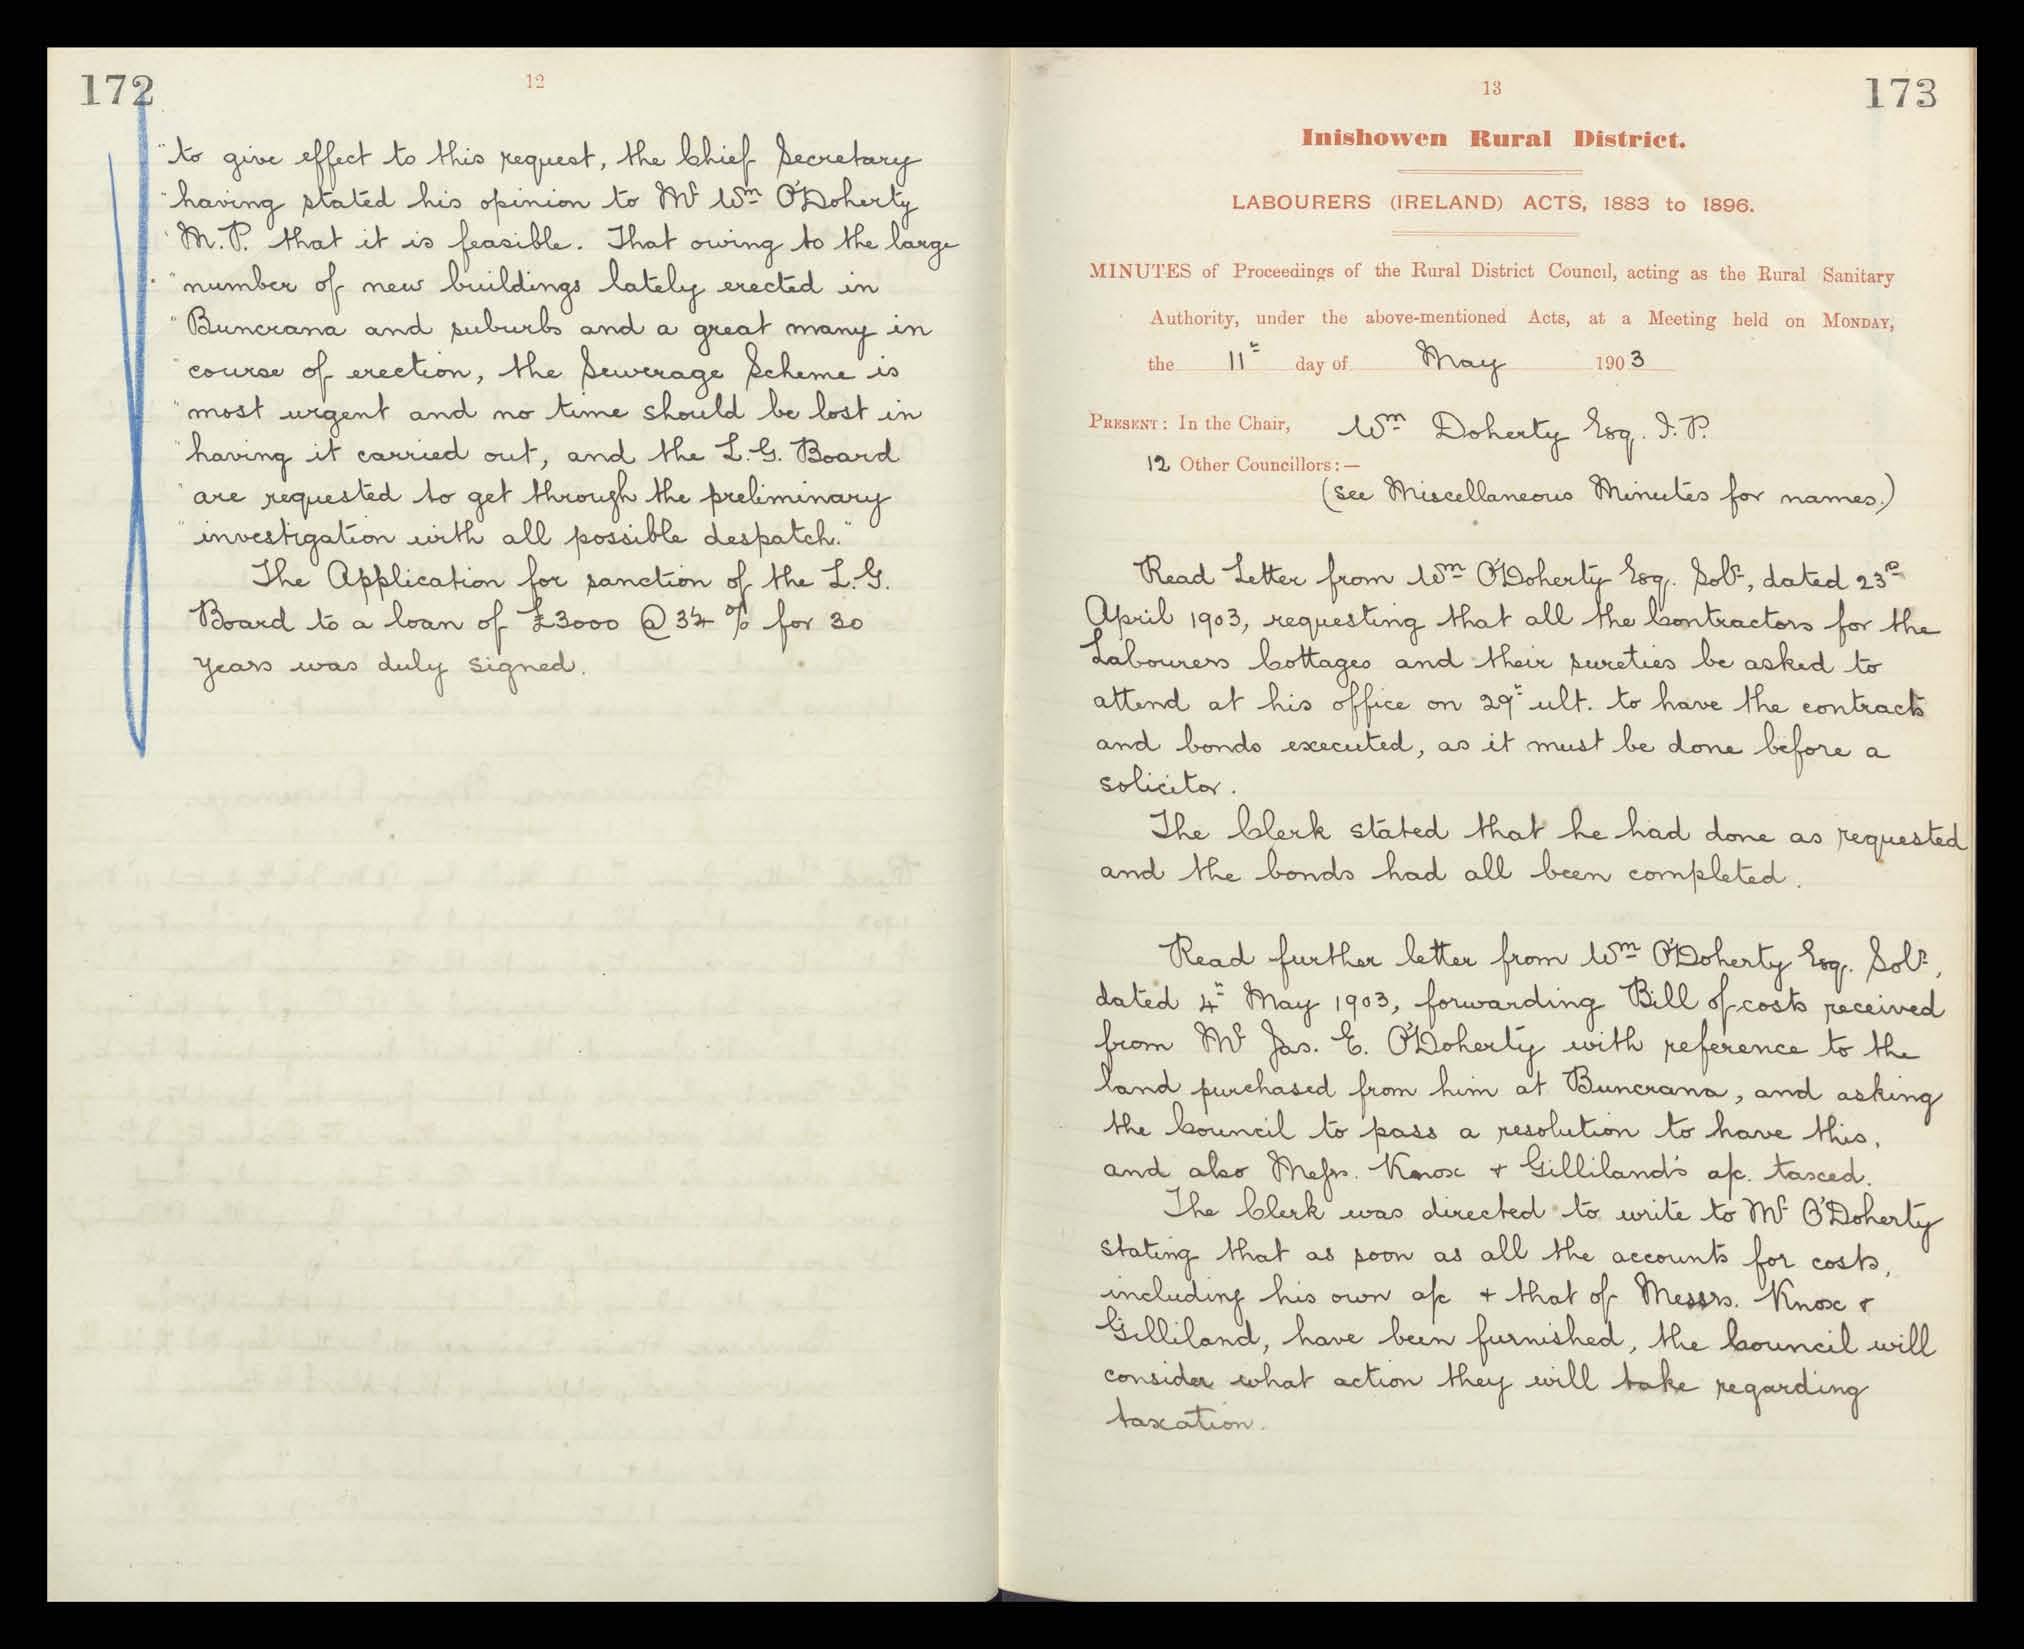 172
12
"to give effect to this request, the Chief Secretary
"having stated his opinion to Mr Wm O'Doherty
"M.P. that it is feasible. That owing to the large
"number of new buildings lately erected in
"Buncrana and suburbs and a great many in
"course of erection, the Sewerage Scheme is
"most urgent and no time should be lost in
"having it carried out, and the L.G. Board
"are requested to get through the preliminary
"investigation with all possible despatch."
The Application for sanction of the L.G.
Board to a loan of £3000 @ 3¼ % for 30
years was duly signed.
13
173
Inishowen Rural District.
LABOURERS (IRELAND) ACTS, 1883 to 1896.
MINUTES of Proceedings of the Rural District Council, acting as the Rural Sanitary
Authority, under the above-mentioned Acts, at a Meeting held on MONDAY,
the 11th day of May 1903
PRESENT: In the Chair, Wm Doherty Esq. J.P.
12 Other Councillors:—
(see Miscellaneous Minutes for names.)
Read Letter from Wm O'Doherty Esq. Solr, dated 23rd
April 1903, requesting that all the Contractors for the
Labourers Cottages and their sureties be asked to
attend at his office on 29th ult. to have the contracts
and bonds executed, as it must be done before a
solicitor.
The Clerk stated that he had done as requested
and the bonds had all been completed.
Read further letter from Wm O'Doherty Esq. Solr,
dated 4th May 1903, forwarding Bill of costs received
from Mr Jas. E. O'Doherty with reference to the
land purchased from him at Buncrana, and asking
the Council to pass a resolution to have this,
and also Messrs. Knox & Gilliland's a/c. taxed.
The Clerk was directed to write to Mr O'Doherty
stating that as soon as all the accounts for costs,
including his own a/c & that of Messrs. Knox &
Gilliland, have been furnished, the Council will
consider what action they will take regarding
taxation.